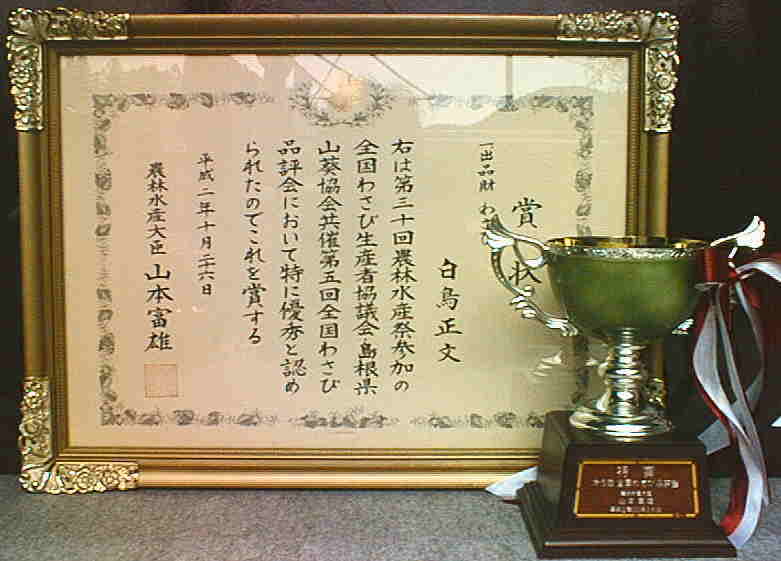 賞状
一出品財 わさ
白鳥正文
右は第三十回農林水産祭参加の
全国わさび生産者協議会・島根県
山葵協会共催第五回全国わさび
品評会において特に優秀と認め
られたのでこれを賞する
平成二年十月二十六日
農林水産大臣 山本富雄